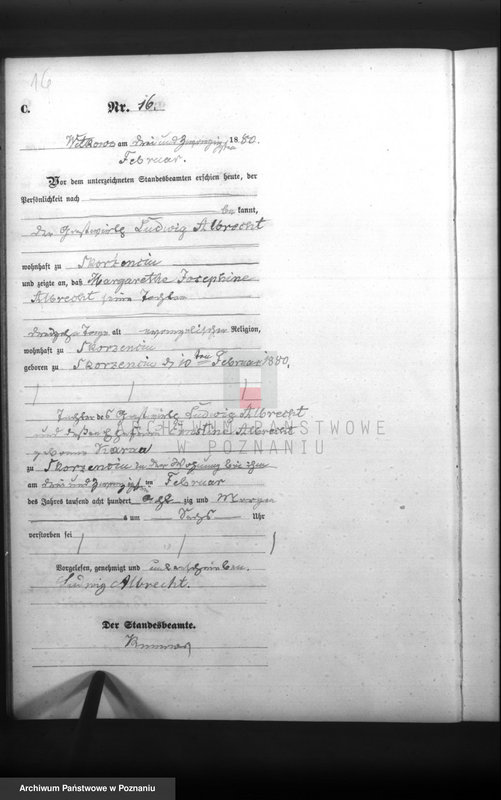 16
C.
Nr. 16.
Witkowo am drei und zwanzigsten 1880.
Februar.
Vor dem unterzeichneten Standesbeamten erschien heute, der
Persönlichkeit nach
be kannt,
der Gastwirth Ludwig Albrecht
wohnhaft zu Skorzencin
und zeigte an, daß Margarethe Josephine
Albrecht seine Tochter
dreizehn Tage alt evangelischer Religion,
wohnhaft zu Skorzencin
geboren zu Skorzencin d. 10ten Februar 1880,
Tochter des Gastwirth Ludwig Albrecht
und dessen Ehefrau Christine Albrecht
geborne
zu Skorzencin in der Wohnung bei ihm
am drei und zwanzigsten Februar
des Jahres tausend acht hundert acht zig und Morgen
s um Sechs Uhr
verstorben sei
Vorgelesen, genehmigt und unterschrieben.
Ludwig Albrecht.
Der Standesbeamte.
ARCHIWUM PAŃSTWOWE
W POZNANIU
Archiwum Państwowe w Poznaniu